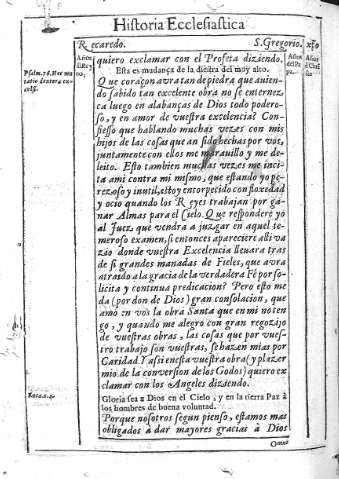 Historia Ecclesiastica
Recaredo.
S. Gregorio.
quiero exclamar con el Profeta diziendo.
Esta es mudança de la diestra del muy alto.
Que coraçon avra tan de piedra que auien-
do sabido tan excelente obra no se enternez
ca luego en alabanças de Dios todo podero-
so, y en amor de vuestra excelencia? Con-
fiesso que hablando muchas vezes con mis
hijos de las cosas que an sido hechas por vos,
juntamente con ellos me marauillo y me de-
leito. Esto tambien muchas vezes me inci-
ta ami contra mi mismo, que estando yo pe-
rezoso y inutil, estoy entorpecido con floxedad
y ocio quando los Reyes trabajan por ga-
nar Almas para el Cielo. Que responderè yo
al Juez que vendra a juzgar en aquel te-
meroso examen, si entonces apareciere alli va
zio donde vuestra Excelencia lleuara tras
de si grandes manadas de Fieles, que avra
atraido a la gracia de la verdadera Fè por so-
licita y continua predicacion? Pero esto me
da (por don de Dios) gran consolacion, que
amo en vos la obra Santa que en mi no ten-
go, y quando me alegro con gran regozijo
de vuestras obras, las cosas que por vues-
tro trabajo son vuestras, se hazen mias por
Caridad. Y assi en esta vuestra obra (y plazer
mio de la conversion de los Godos) quiero ex
clamar con los Angeles diziendo.
Gloria sea a Dios en el Cielo, y en la tierra Paz à
los hombres de buena voluntad.
Porque nosotros segun pienso, estamos mas
obligados à dar mayores gracias à Dios